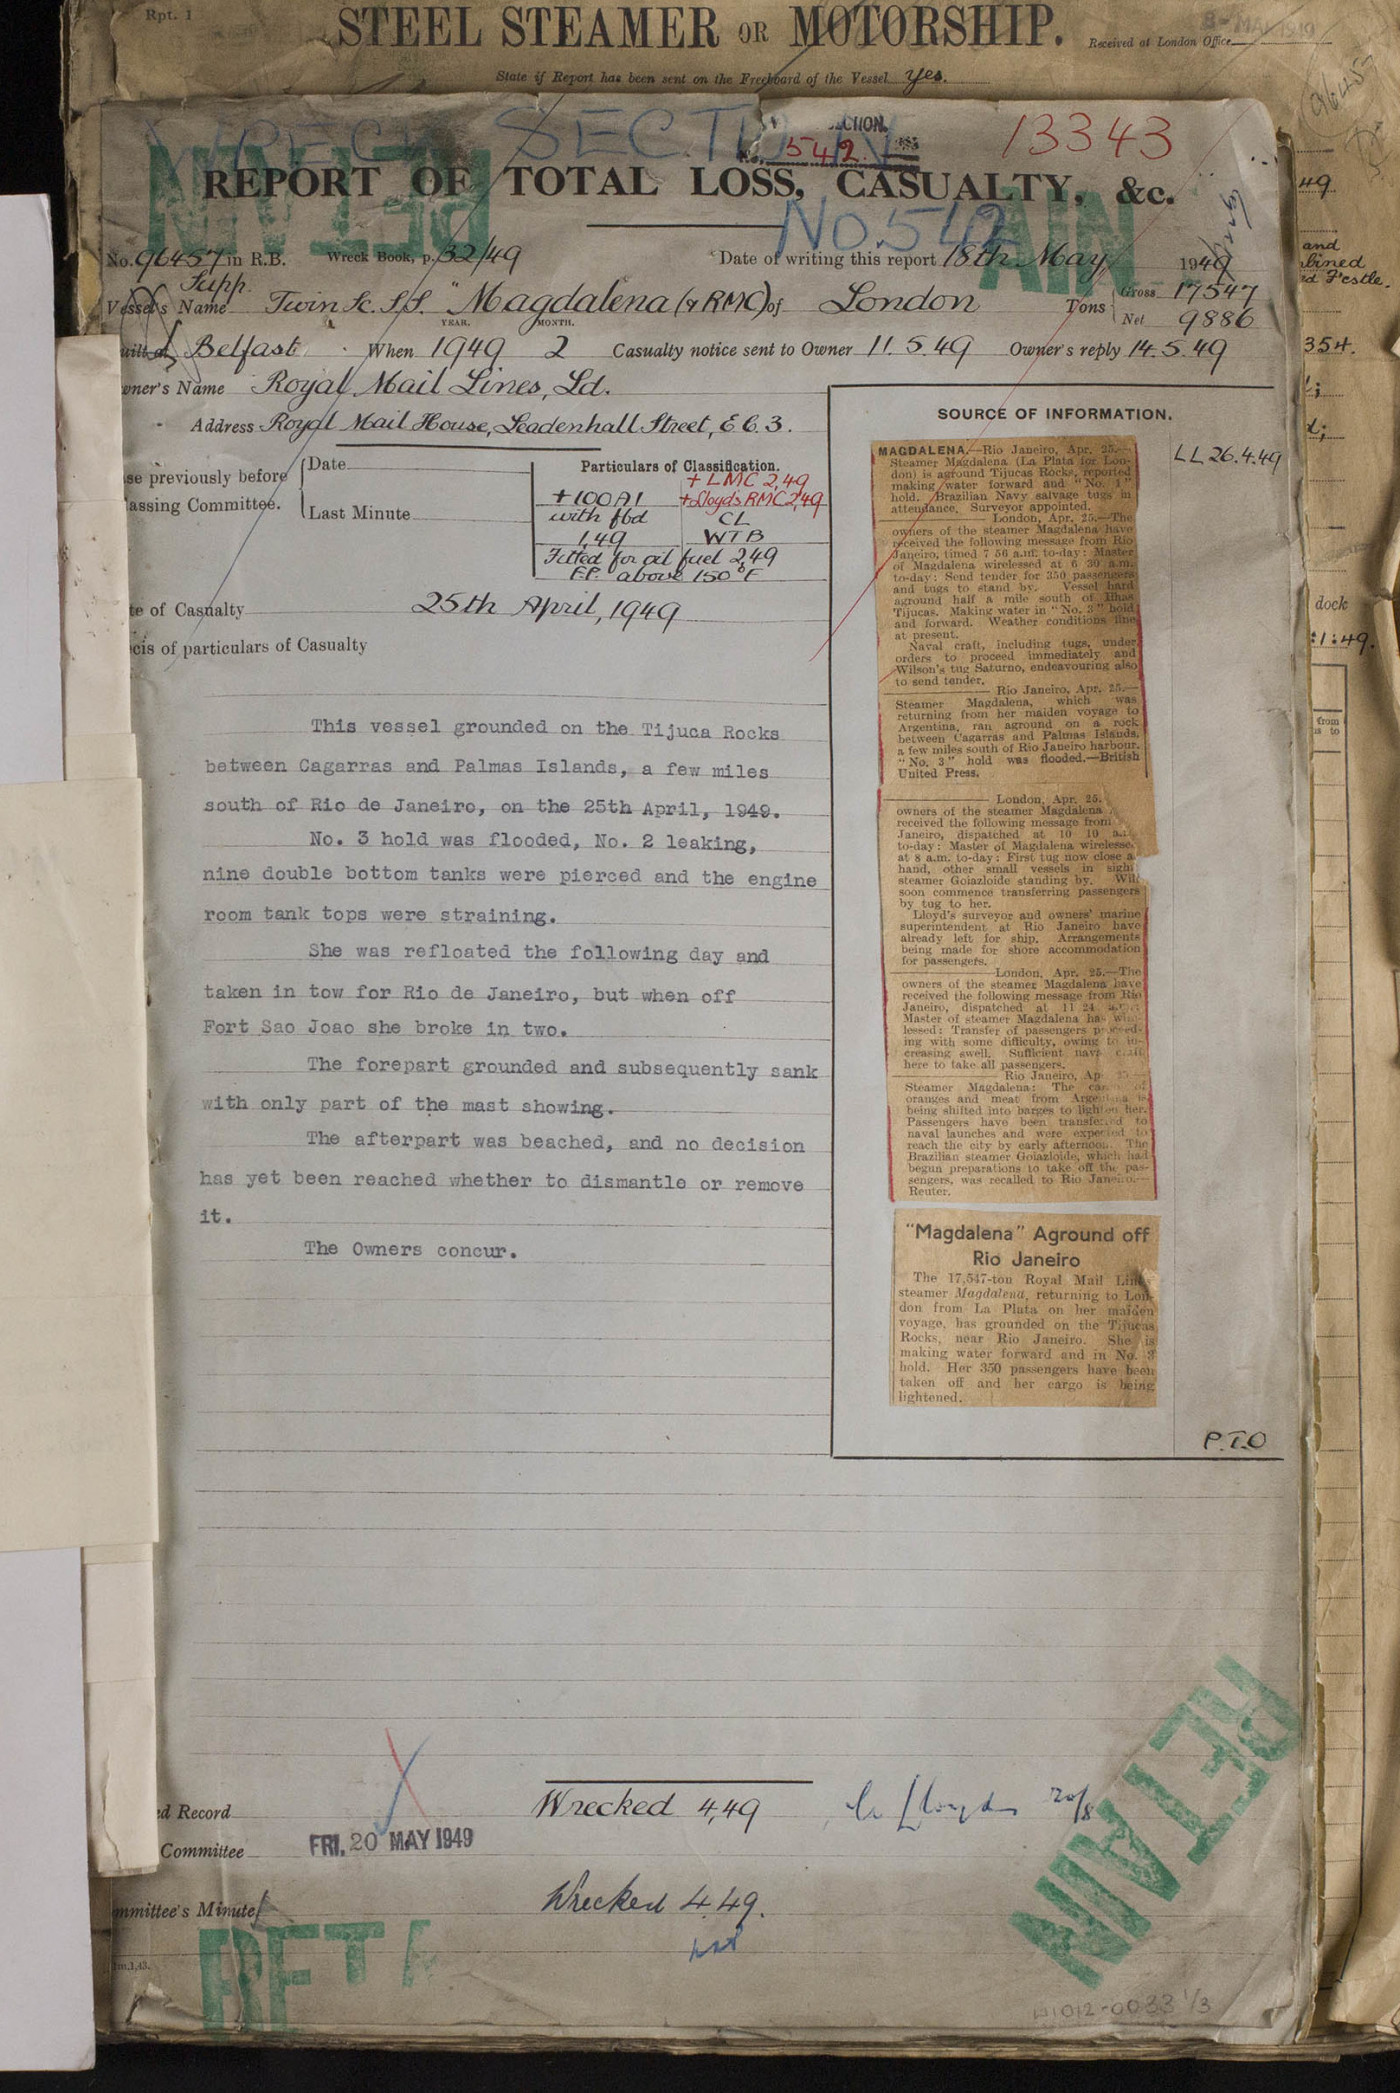 Rpt. 1
STEEL STEAMER OR MOTORSHIP.
Received at London Office
8 - MAY 1949
State if Report has been sent on the Freeboard of the Vessel yes.
WRECK SECTION
No. 542.
13343
RETAIN
REPORT OF TOTAL LOSS, CASUALTY, &c.
No. 542
No. 96457 in R.B. Wreck Book, p. 32/49 Date of writing this report 18th May, 1949
Supp.
Vessel's Name Twin Sc. S.S. "Magdalena (& RMC) of London Tons Gross 17547
Net 9886
YEAR. MONTH.
Belfast When 1949 2 Casualty notice sent to Owner 11.5.49 Owner's reply 14.5.49
wner's Name Royal Mail Lines, Ld.
Address Royal Mail House, Leadenhall Street, E.C.3.
se previously before
lassing Committee.
Date
Last Minute
Particulars of Classification.
+ LMC 2,49
+100A1 +Lloyd's RMC 2,49
with fbd CL
1,49 WTB
Fitted for oil fuel 2,49
F.P. above 150°F
te of Casualty 25th April, 1949
cis of particulars of Casualty
This vessel grounded on the Tijuca Rocks
between Cagarras and Palmas Islands, a few miles
south of Rio de Janeiro, on the 25th April, 1949.
No. 3 hold was flooded, No. 2 leaking,
nine double bottom tanks were pierced and the engine
room tank tops were straining.
She was refloated the following day and
taken in tow for Rio de Janeiro, but when off
Fort Sao Joao she broke in two.
The forepart grounded and subsequently sank
with only part of the mast showing.
The afterpart was beached, and no decision
has yet been reached whether to dismantle or remove
it.
The Owners concur.
SOURCE OF INFORMATION.
LL 26.4.49
MAGDALENA.—Rio Janeiro, Apr. 25.—
Steamer Magdalena (La Plata for Lon-
don) is aground Tijucas Rocks, reported
making water forward and "No. 1"
hold. Brazilian Navy salvage tugs in
attendance. Surveyor appointed.
London, Apr. 25.—The
owners of the steamer Magdalena have
received the following message from Rio
Janeiro, timed 7 56 a.m. to-day: Master
of Magdalena wirelessed at 6 30 a.m.
to-day: Send tender for 350 passengers
and tugs to stand by. Vessel hard
aground half a mile south of Ilhas
Tijucas. Making water in "No. 3" hold
and forward. Weather conditions fine
at present.
Naval craft, including tugs, under
orders to proceed immediately and
Wilson's tug Saturno, endeavouring also
to send tender.
Rio Janeiro, Apr. 25.—
Steamer Magdalena, which was
returning from her maiden voyage to
Argentina, ran aground on a rock
between Cagarras and Palmas Islands,
a few miles south of Rio Janeiro harbour.
"No. 3" hold was flooded.—British
United Press.
London, Apr. 25.
owners of the steamer Magdalena
received the following message from
Janeiro, dispatched at 10 10 a.
to-day: Master of Magdalena wirelesse
at 8 a.m. to-day: First tug now close a
hand, other small vessels in sight
steamer Goiazloide standing by. Will
soon commence transferring passengers
by tug to her.
Lloyd's surveyor and owners' marine
superintendent at Rio Janeiro have
already left for ship. Arrangements
being made for shore accommodation
for passengers.
London, Apr. 25.—The
owners of the steamer Magdalena have
received the following message from Rio
Janeiro, dispatched at 11 24
Master of steamer Magdalena has wire-
lessed: Transfer of passengers proceed-
ing with some difficulty, owing to in-
creasing swell. Sufficient naval craft
here to take all passengers.
Rio Janeiro, Ap 25
Steamer Magdalena: The cargo of
oranges and meat from Argentina is
being shifted into barges to lighten her.
Passengers have been transferred to
naval launches and were expected to
reach the city by early afternoon. The
Brazilian steamer Goiazloide, which had
begun preparations to take off the pas-
sengers, was recalled to Rio Janeiro.—
Reuter.
"Magdalena" Aground off
Rio Janeiro
The 17,547-ton Royal Mail Line
steamer Magdalena, returning to Lon-
don from La Plata on her maiden
voyage, has grounded on the Tijucas
Rocks, near Rio Janeiro. She is
making water forward and in No. 3
hold. Her 350 passengers have been
taken off and her cargo is being
lightened.
P.T.O
ed Record Wrecked 4,49
Committee FRI. 20 MAY 1949
mmittee's Minute Wrecked 4.49.
RETAIN
RETA
1m,1,43.
W1012-0033 1/3
49
and
bined
d F'cstle.
354.
dock
:1:49.
from
to
96457